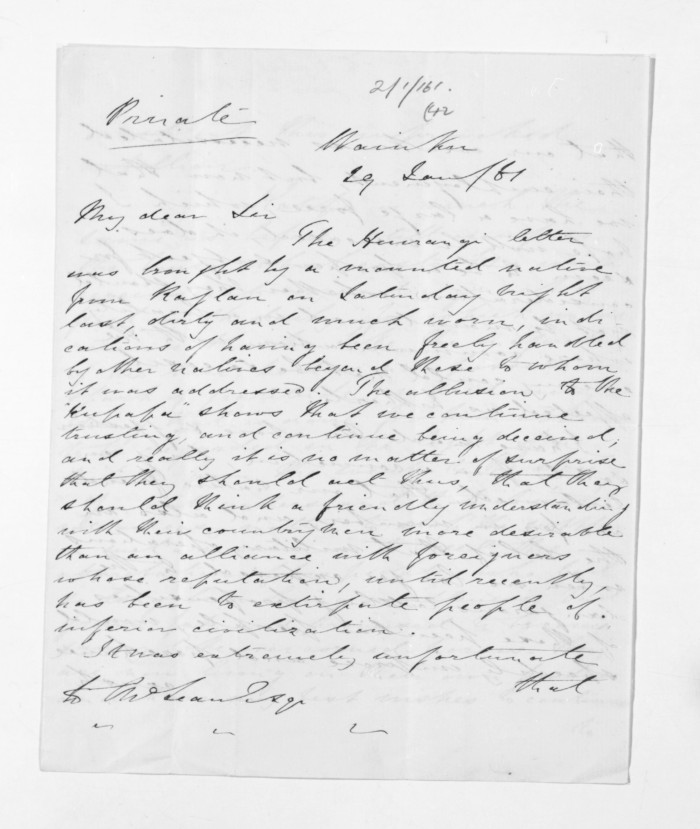 2/1/61.
Private
Waiuku
29 Jan/61
My dear Sir
The Huirangi letter
was brought by a mounted native
from Raglan on Saturday night
last, dirty and much worn, indi
cations of having been freely handled
by other natives beyond those to whom
it was addressed. The allusion to the
"Kupapa" shows that we continue
trusting, and continue being deceived,
and really it is no matter of surprise
that they should act thus, that they
should think a friendly understanding
with their countrymen more desirable
than an alliance with foreigners
whose reputation, until recently,
has been to extirpate people of
inferior civilization.
It was extremely unfortunate
that
to McLean Esqr